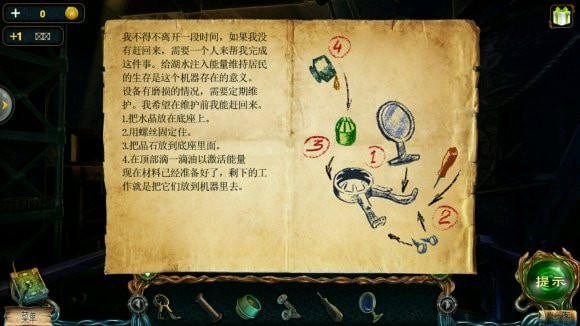 + 0
+1
我不得不离开一段时间，如果我没
有赶回来，需要一个人来帮我完成
这件事。给湖水注入能量维持居民
的生存是这个机器存在的意义。
设备有磨损的情况，需要定期维
护。我希望在维护前我能赶回来。
1.把水晶放在底座上。
2.用螺丝固定住。
3.把晶石放到底座里面。
4.在顶部滴一滴油以激活能量
现在材料已经准备好了，剩下的工
作就是把它们放到机器里去。
4
3
1
2
菜单
提示